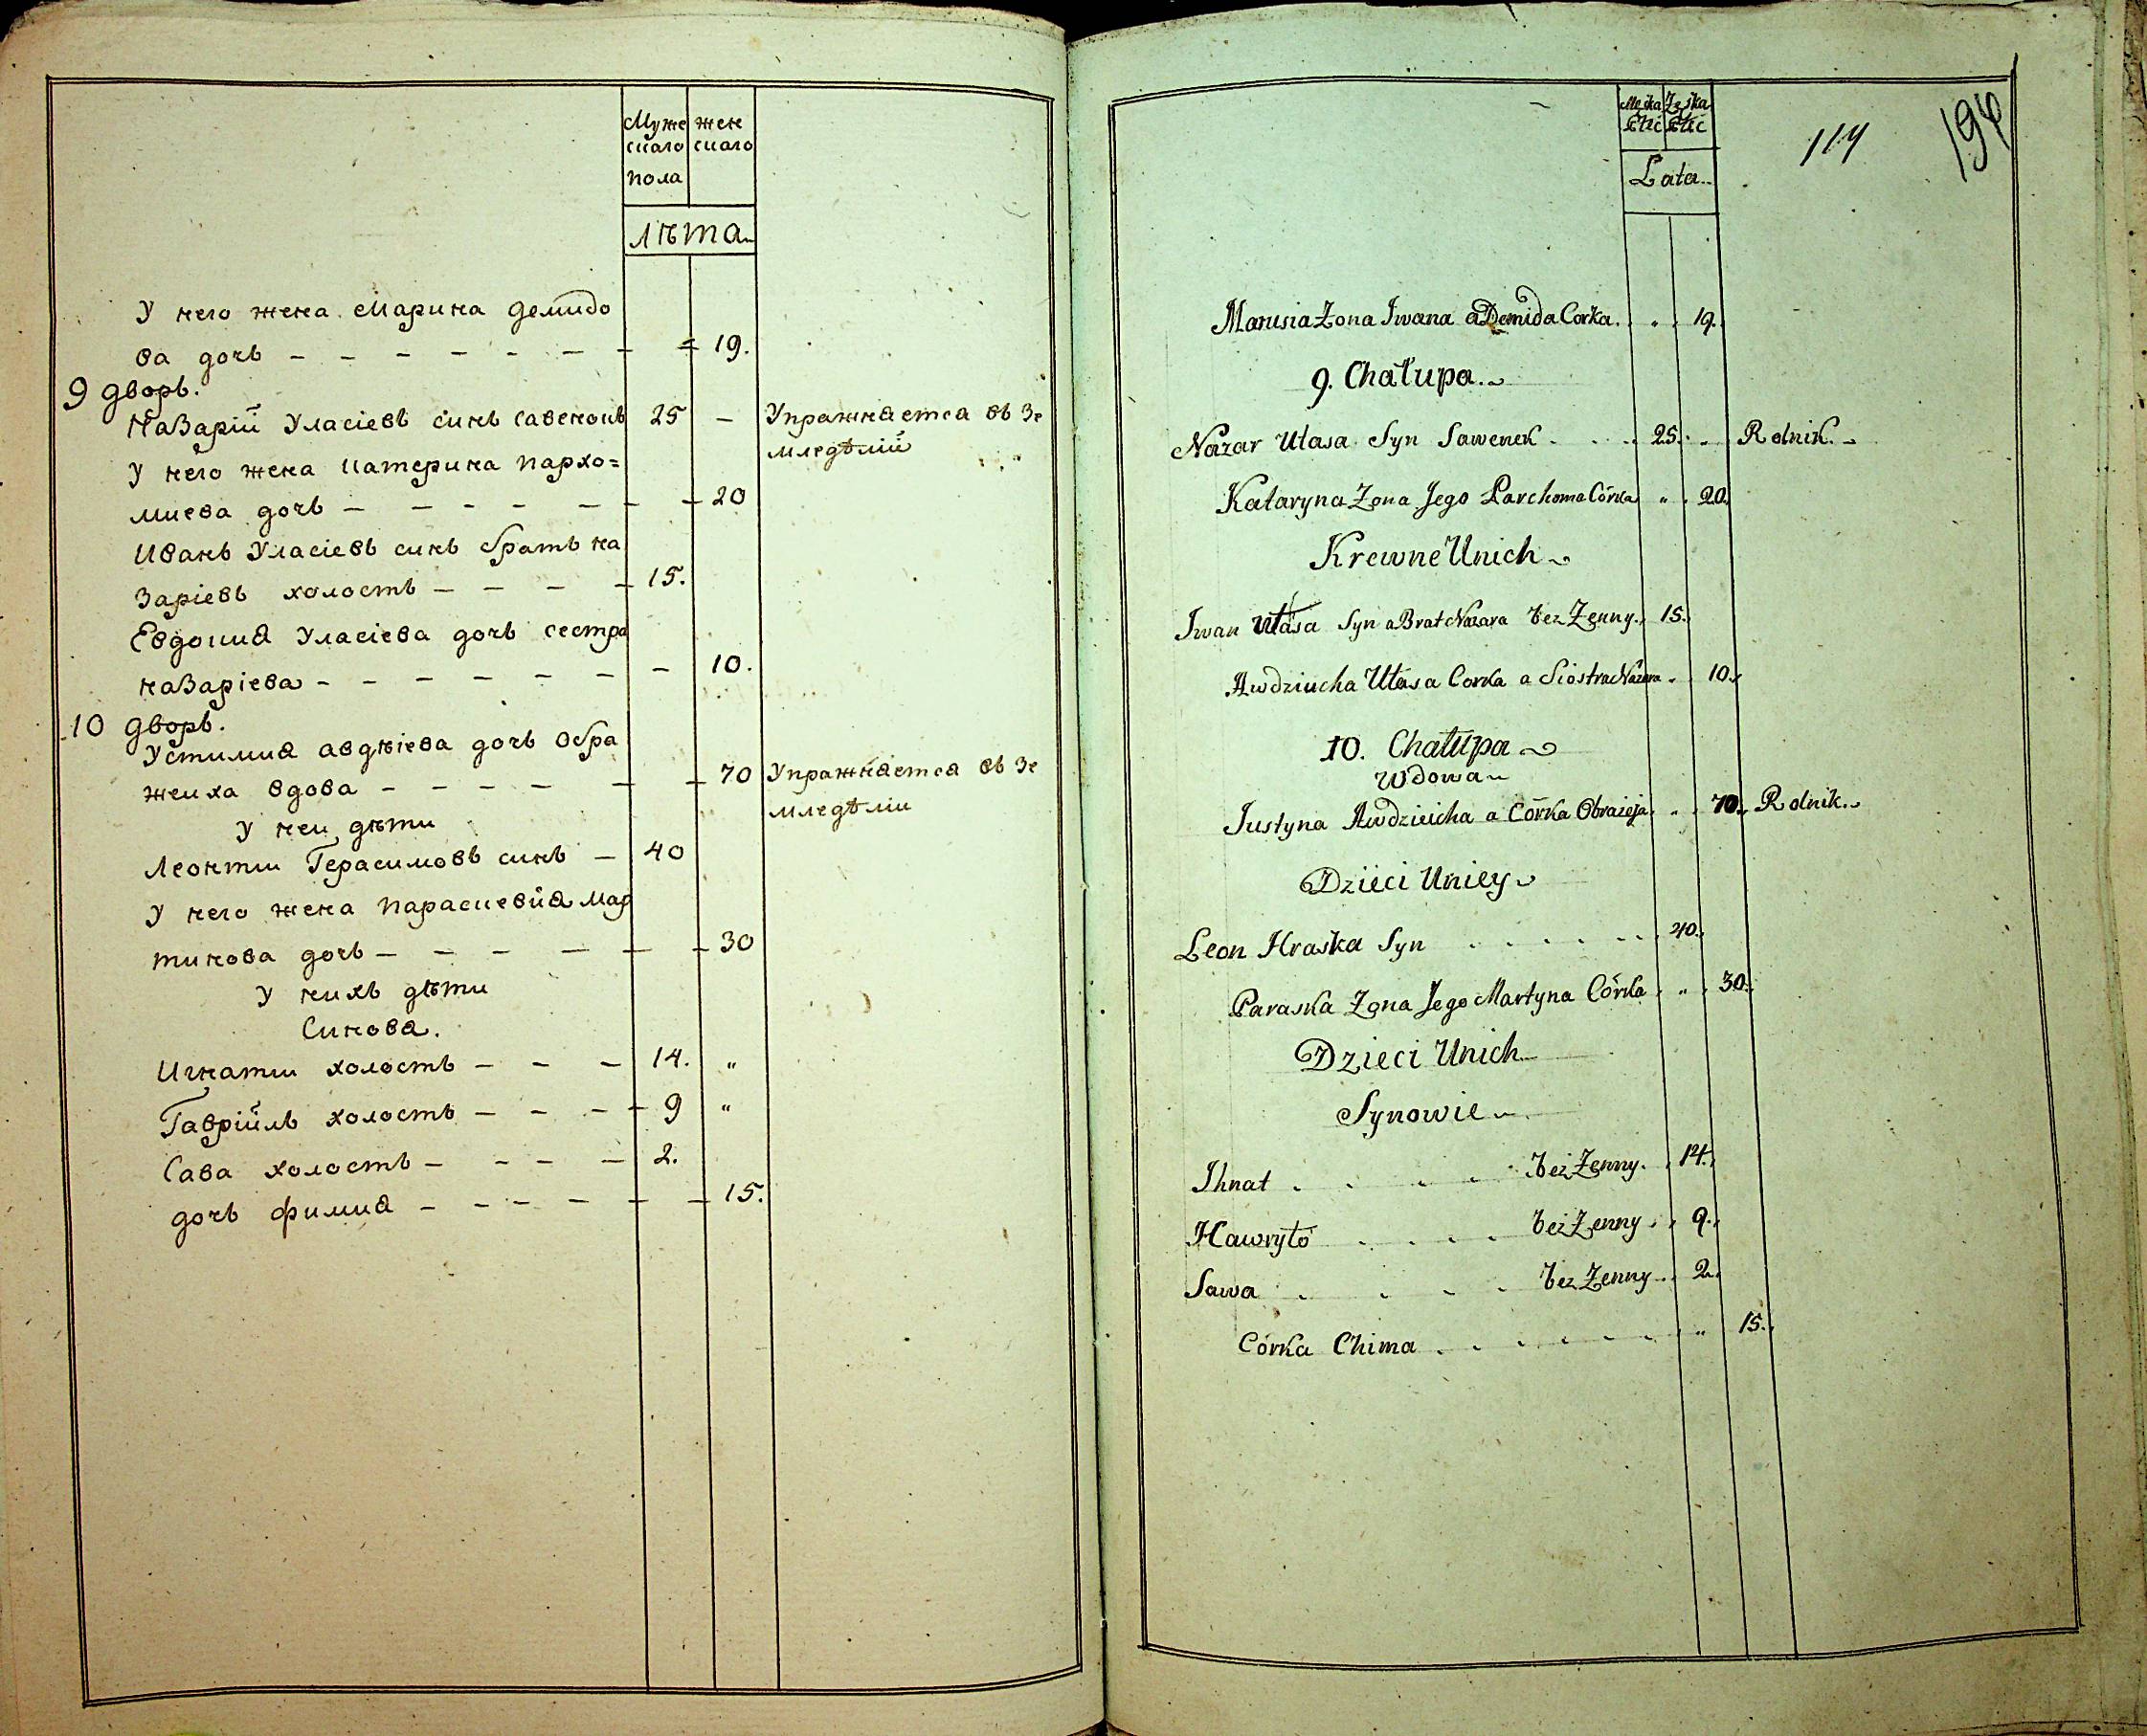 Муже
скаго
пола
жен
скаго
лѣта
У него жена Марина Демидо
ва дочь 19.
9 дворъ.
Назарій Уласіевъ синъ Савенокъ 25 — Упражняется въ зе
мледѣліи
У него жена Катерина Пархо=
миева дочь 20
Иванъ Уласіевъ синъ братъ На
заріевъ холостъ 15.
Евдокия Уласіева дочь сестра
Назаріева 10.
10 дворъ.
Устимия Авдѣіева дочь Обра
жеиха вдова 70 Упражняется въ зе
мледѣлiи
У неи дѣти
Леонтии Герасимовъ синъ 40
У него жена Параскевия Мар
тинова дочь 30
У нихъ дѣти
Синова.
Игнатии холостъ 14. "
Гавріилъ холостъ 9 "
Сава холостъ 2.
дочь Фимия 15.
Męska Żęska
Płić Płić
Lata
114
194
Marusia Żona Iwana a Demida Corka. " 19.
9. Chałupa.
Nazar Ułasa Syn Sawenek 25. Rolnik.
Kataryna Żona Jego Parchoma Córka " 20.
Krewne Unich
Iwan Ułasa Syn a Brat Nazara bez Żenny. 15.
Awdziucha Ułasa Corka a Siostra Nazara 10.
10. Chałupa
Wdowa
Justyna Awdzieicha a Córka Obrażeja. " 70. Rolnik.
Dzieci Uniey
Leon Hraśka Syn 40.
Paraska Żona Jego Martyna Córka " 30.
Dzieci Unich
Synowie
Ihnat bez Żenny. 14.
Hawryło bez Żenny 9.
Sawa bez Żenny 2.
Córka Chima " 15.